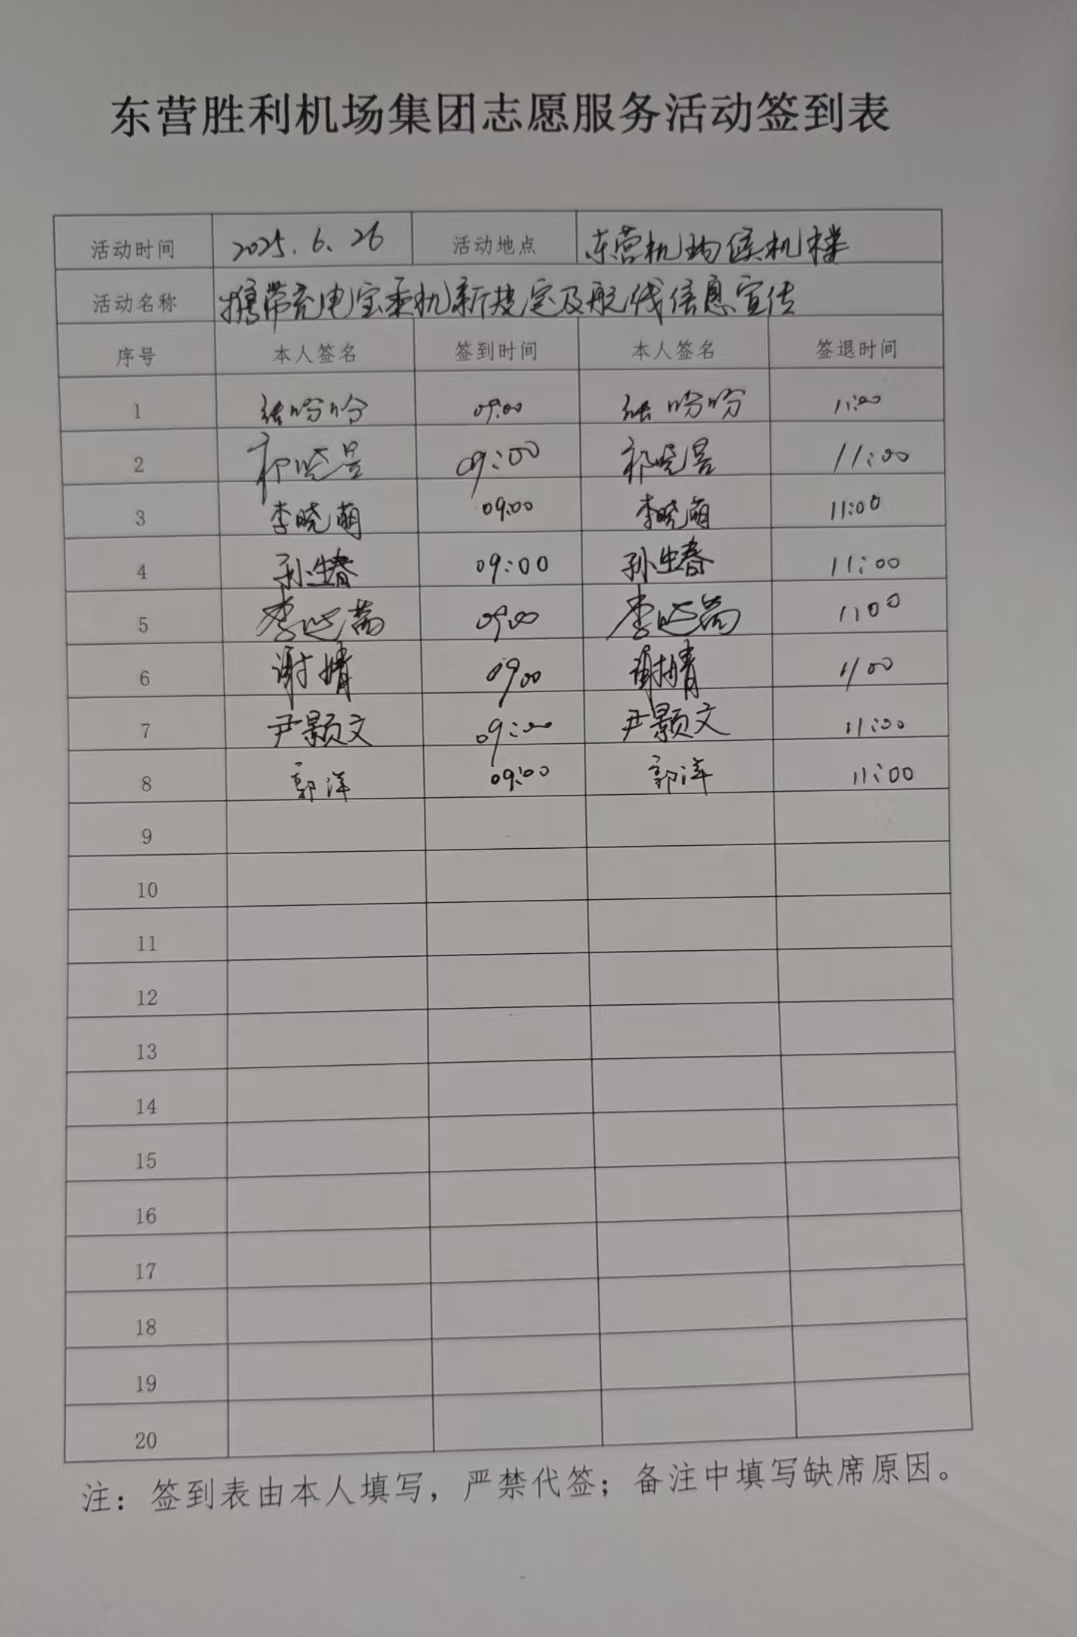 东营胜利机场集团志愿服务活动签到表
活动时间 2025.6.26 活动地点 东营机场候机楼
活动名称 携带充电宝乘机新规定及航线信息宣传
序号 本人签名 签到时间 本人签名 签退时间
1 盼盼 09:00 盼盼 11:00
2 祁晓昱 09:00 祁晓昱 11:00
3 李晓萌 09:00 李晓萌 11:00
4 孙生春 09:00 孙生春 11:00
5 李 09:00 李 11:00
6 谢婧 09:00 谢婧 11:00
7 尹颢文 09:00 尹颢文 11:00
8 郭洋 09:00 郭洋 11:00
9
10
11
12
13
14
15
16
17
18
19
20
注：签到表由本人填写，严禁代签；备注中填写缺席原因。